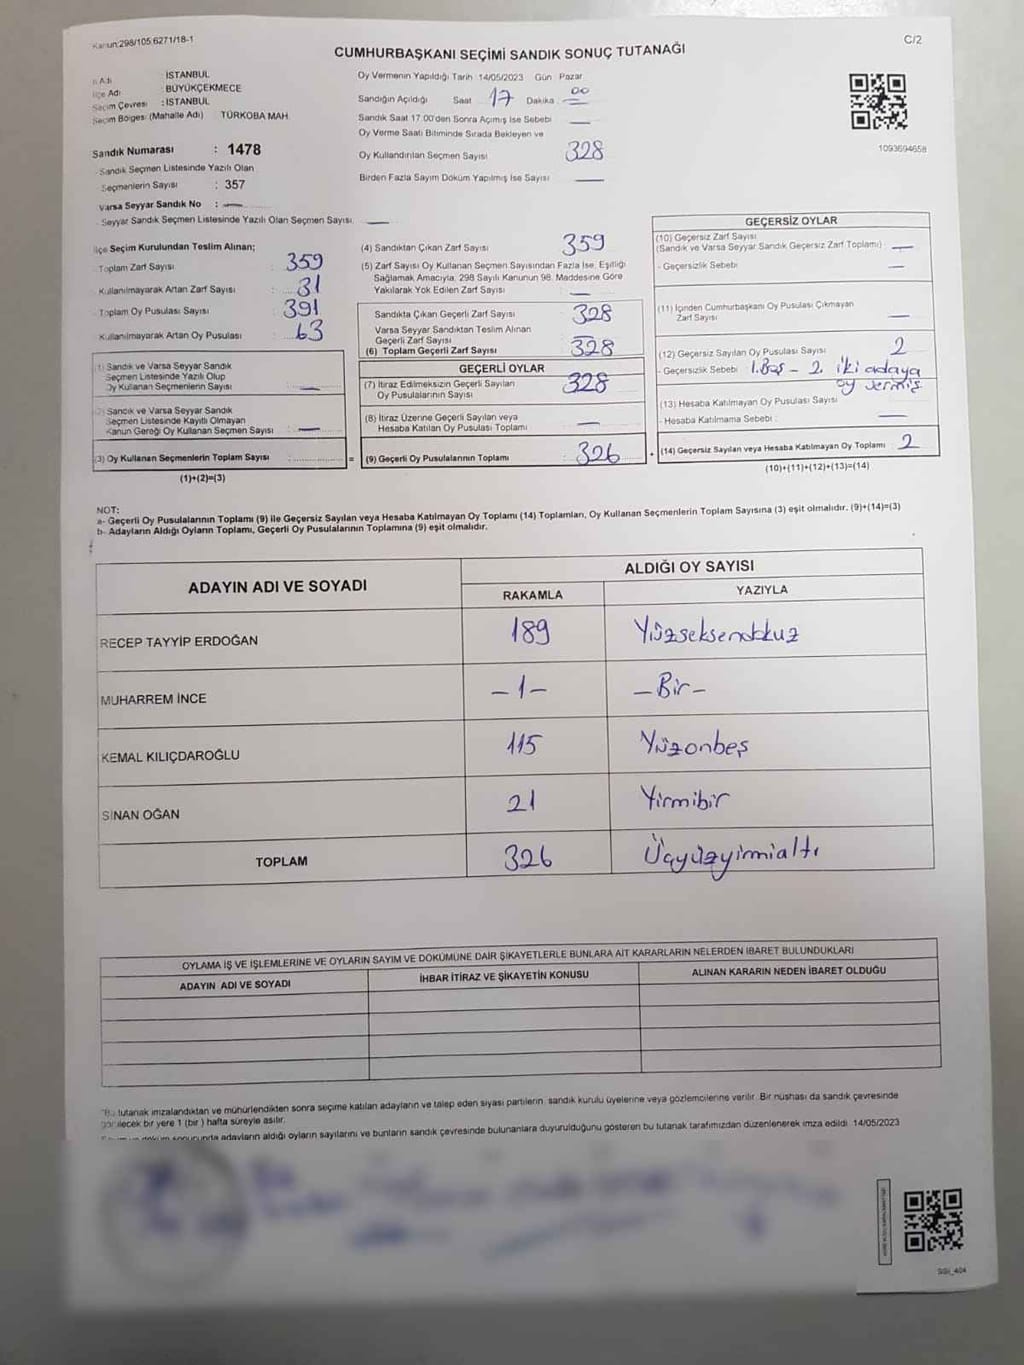 Kanun:298/105,6271/18-1
C/2
CUMHURBAŞKANI SEÇİMİ SANDIK SONUÇ TUTANAĞI
İl Adı : İSTANBUL
İlçe Adı : BÜYÜKÇEKMECE
Seçim Çevresi : İSTANBUL
Seçim Bölgesi (Mahalle Adı) TÜRKOBA MAH.
Sandık Numarası : 1478
Sandık Seçmen Listesinde Yazılı Olan
Seçmenlerin Sayısı : 357
Varsa Seyyar Sandık No : —
Seyyar Sandık Seçmen Listesinde Yazılı Olan Seçmen Sayısı —
Oy Vermenin Yapıldığı Tarih 14/05/2023 Gün Pazar
Sandığın Açıldığı Saat 17 Dakika 00
Sandık Saat 17.00'den Sonra Açımış İse Sebebi —
Oy Verme Saati Bitiminde Sırada Bekleyen ve
Oy Kullandırılan Seçmen Sayısı 328
Birden Fazla Sayım Döküm Yapılmış İse Sayısı —
1093694658
İlçe Seçim Kurulundan Teslim Alınan;
Toplam Zarf Sayısı : 359
Kullanılmayarak Artan Zarf Sayısı : 31
Toplam Oy Pusulası Sayısı : 391
Kullanılmayarak Artan Oy Pusulası : 63
(1) Sandık ve Varsa Seyyar Sandık
Seçmen Listesinde Yazılı Olup
Oy Kullanan Seçmenlerin Sayısı : —
(2) Sandık ve Varsa Seyyar Sandık
Seçmen Listesinde Kayıtlı Olmayan
Kanun Gereği Oy Kullanan Seçmen Sayısı : —
(3) Oy Kullanan Seçmenlerin Toplam Sayısı : =
(1)+(2)=(3)
(4) Sandıktan Çıkan Zarf Sayısı 359
(5) Zarf Sayısı Oy Kullanan Seçmen Sayısından Fazla İse, Eşitliği
Sağlamak Amacıyla, 298 Sayılı Kanunun 98. Maddesine Göre
Yakılarak Yok Edilen Zarf Sayısı —
Sandıkta Çıkan Geçerli Zarf Sayısı 328
Varsa Seyyar Sandıktan Teslim Alınan
Geçerli Zarf Sayısı —
(6) Toplam Geçerli Zarf Sayısı 328
GEÇERLİ OYLAR
(7) İtiraz Edilmeksizin Geçerli Sayılan
Oy Pusulalarının Sayısı 328
(8) İtiraz Üzerine Geçerli Sayılan veya
Hesaba Katılan Oy Pusulası Toplamı —
(9) Geçerli Oy Pusulalarının Toplamı 326 +
GEÇERSİZ OYLAR
(10) Geçersiz Zarf Sayısı
(Sandık ve Varsa Seyyar Sandık Geçersiz Zarf Toplamı) —
- Geçersizlik Sebebi —
(11) İçinden Cumhurbaşkanı Oy Pusulası Çıkmayan
Zarf Sayısı —
(12) Geçersiz Sayılan Oy Pusulası Sayısı 2
- Geçersizlik Sebebi 1. Boş - 2. iki adaya
oy vermiş
(13) Hesaba Katılmayan Oy Pusulası Sayısı
- Hesaba Katılmama Sebebi : —
(14) Geçersiz Sayılan veya Hesaba Katılmayan Oy Toplamı : 2
(10)+(11)+(12)+(13)=(14)
NOT:
a- Geçerli Oy Pusulalarının Toplamı (9) ile Geçersiz Sayılan veya Hesaba Katılmayan Oy Toplamı (14) Toplamları, Oy Kullanan Seçmenlerin Toplam Sayısına (3) eşit olmalıdır. (9)+(14)=(3)
b- Adayların Aldığı Oyların Toplamı, Geçerli Oy Pusulalarının Toplamına (9) eşit olmalıdır.
ADAYIN ADI VE SOYADI
ALDIĞI OY SAYISI
RAKAMLA YAZIYLA
RECEP TAYYİP ERDOĞAN 189 Yüzseksendokuz
MUHARREM İNCE -1- -Bir-
KEMAL KILIÇDAROĞLU 115 Yüzonbeş
SİNAN OĞAN 21 Yirmibir
TOPLAM 326 Üçyüzyirmialtı
OYLAMA İŞ VE İŞLEMLERİNE VE OYLARIN SAYIM VE DÖKÜMÜNE DAİR ŞİKAYETLERLE BUNLARA AİT KARARLARIN NELERDEN İBARET BULUNDUKLARI
ADAYIN ADI VE SOYADI İHBAR İTİRAZ VE ŞİKAYETİN KONUSU ALINAN KARARIN NEDEN İBARET OLDUĞU
Bu tutanak imzalandıktan ve mühürlendikten sonra seçime katılan adayların ve talep eden siyasi partilerin, sandık kurulu üyelerine veya gözlemcilerine verilir. Bir nüshası da sandık çevresinde
görülecek bir yere 1 (bir ) hafta süreyle asılır.
sonucunda adayların aldığı oyların sayılarını ve bunların sandık çevresinde bulunanlara duyurulduğunu gösteren bu tutanak tarafımızdan düzenlenerek imza edildi. 14/05/2023